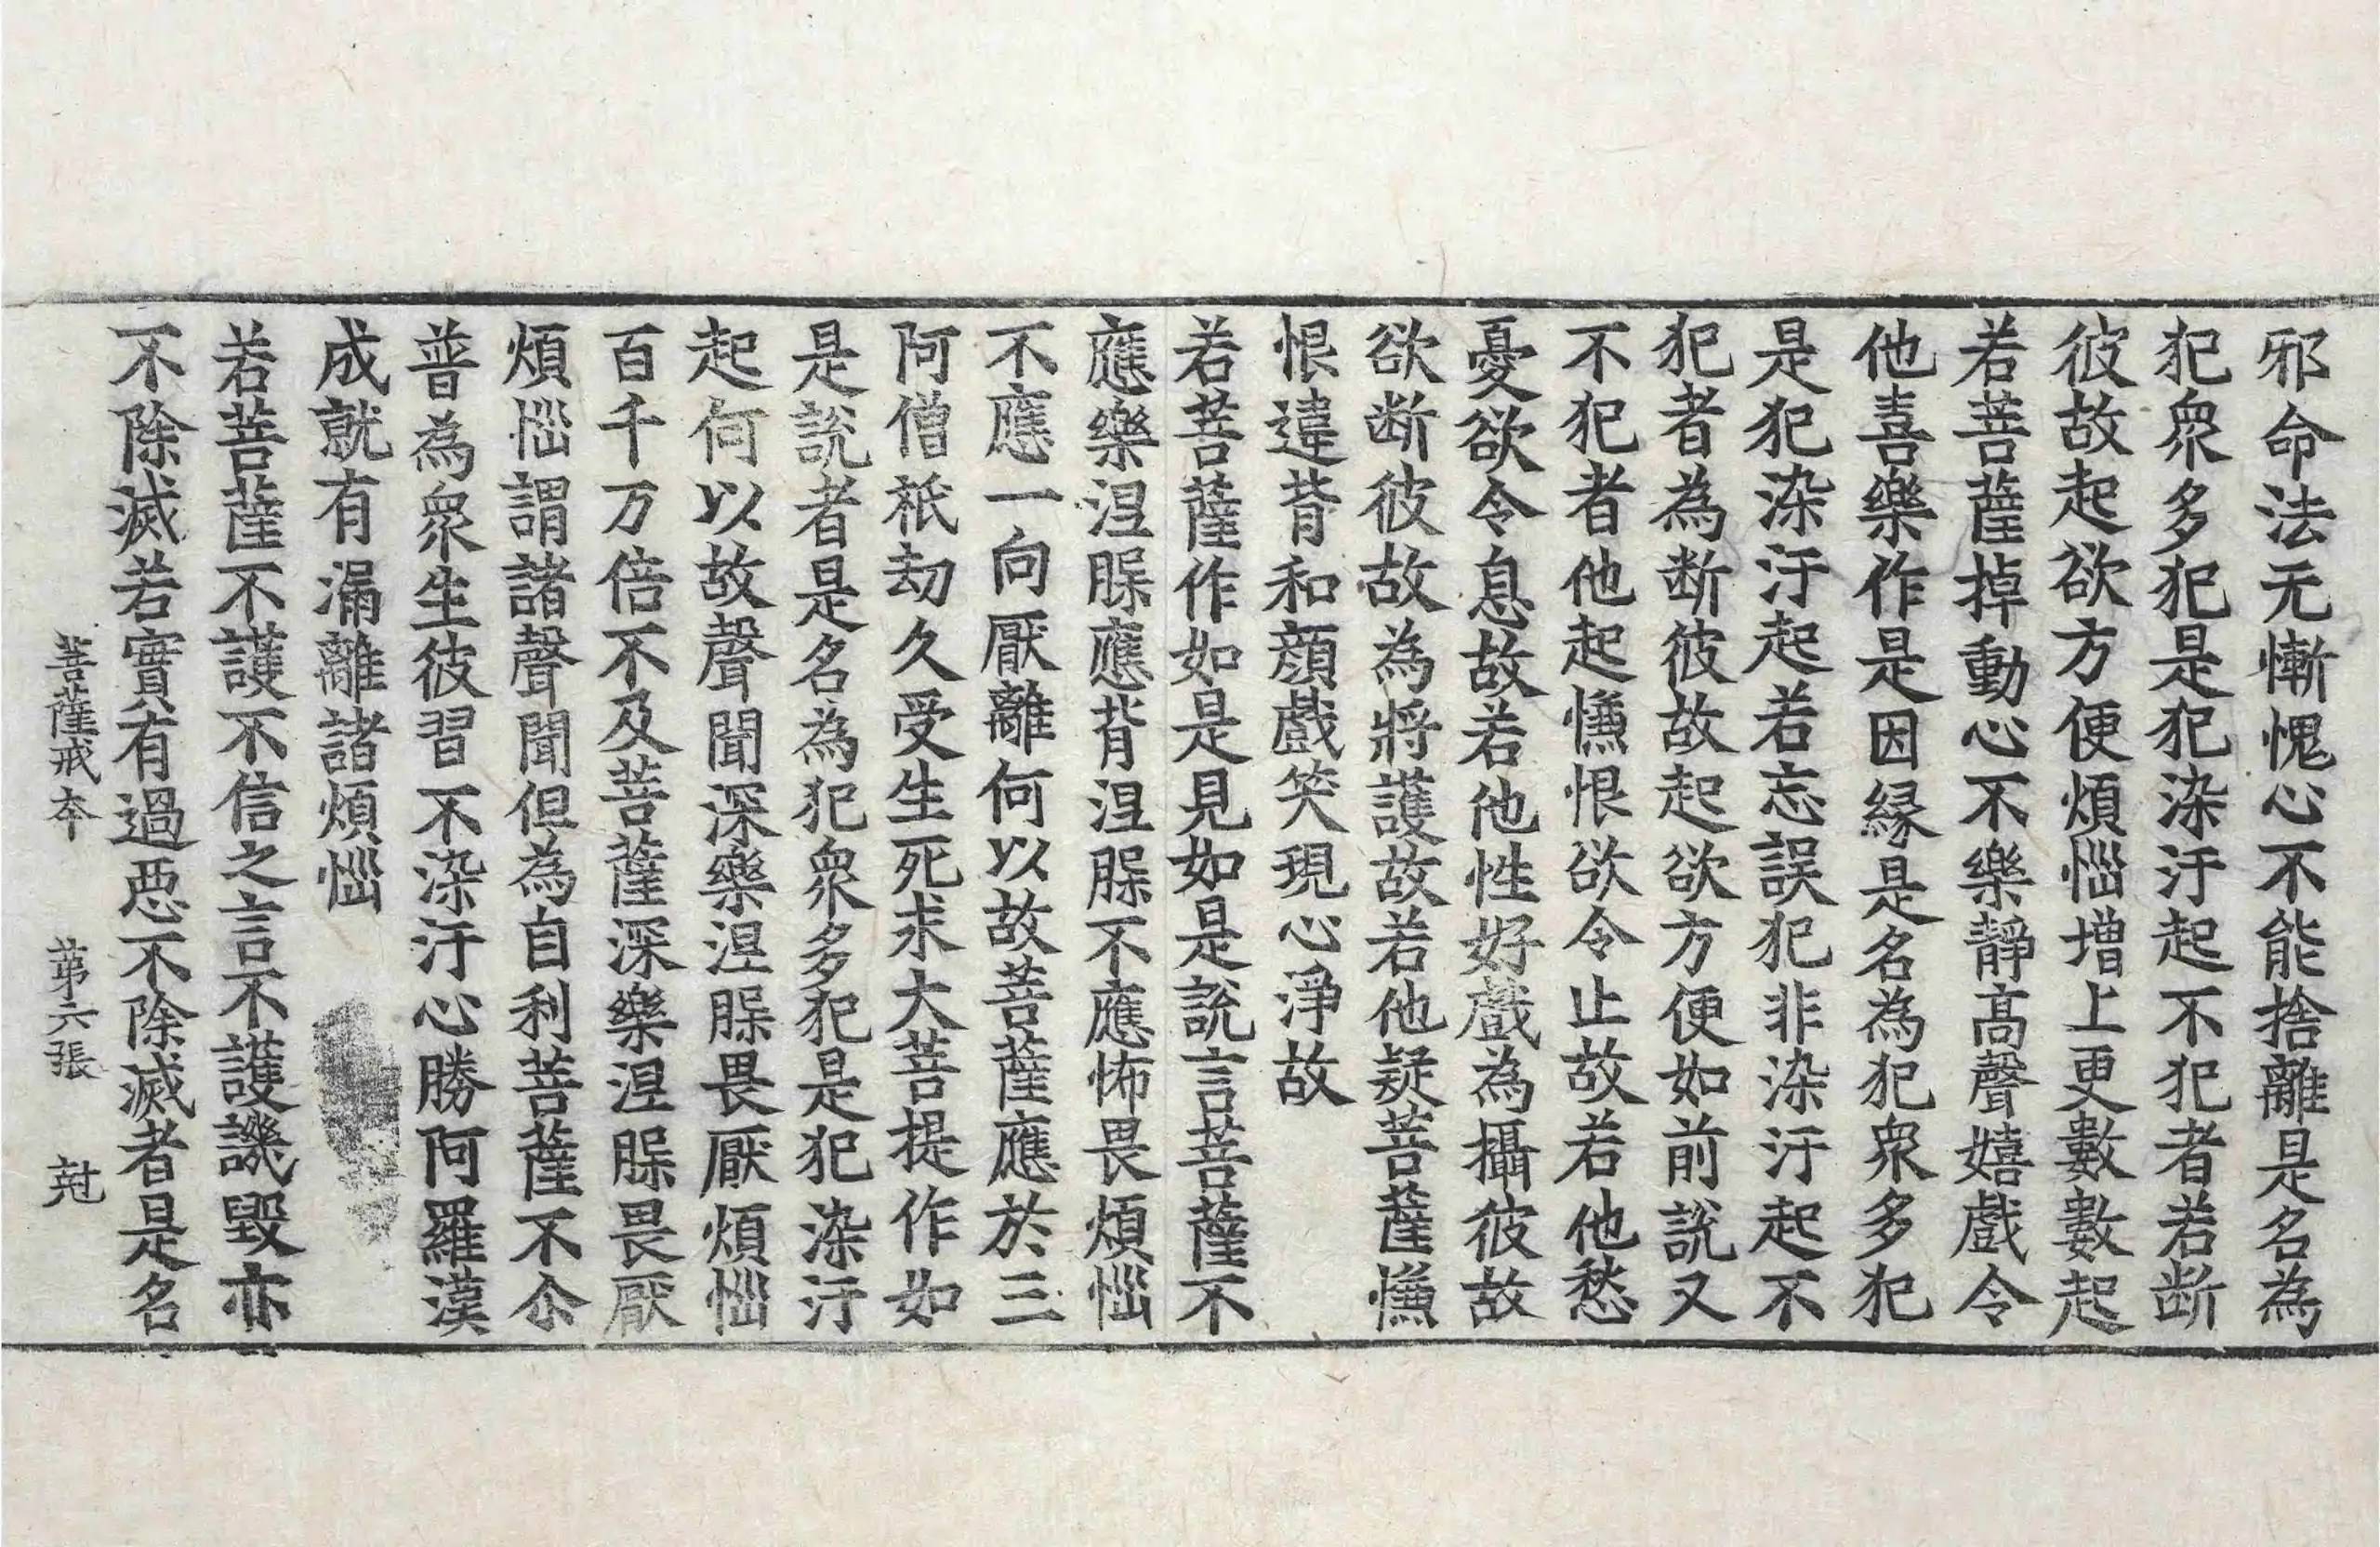 邪命法无慚愧心不能捨離是名為
犯衆多犯是犯染汙起不犯者若断
彼故起欲方便煩惱增上更數數起
若菩薩掉動心不樂靜髙聲嬉戲令
他喜樂作是因緣是名為犯衆多犯
是犯染汙起若忘誤犯非染汙起不
犯者為断彼故起欲方便如前說又
不犯者他起慊恨欲令止故若他愁
憂欲令息故若他性好戲為攝彼故
欲断彼故為將護故若他疑菩薩慊
恨違背和顔戲笑現心淨故
若菩薩作如是見如是說言菩薩不
應樂涅槃應背涅槃不應怖畏煩惱
不應一向厭離何以故菩薩應於三
阿僧祇劫久受生死求大菩提作如
是說者是名為犯衆多犯是犯染汙
起何以故聲聞深樂涅槃畏厭煩惱
百千万倍不及菩薩深樂涅槃畏厭
煩惱謂諸聲聞但為自利菩薩不尒
普為衆生彼習不染汙心勝阿羅漢
成就有漏離諸煩惱
若菩薩不護不信之言不護譏毀亦
不除滅若實有過惡不除滅者是名
菩薩戒本 第六張 尅